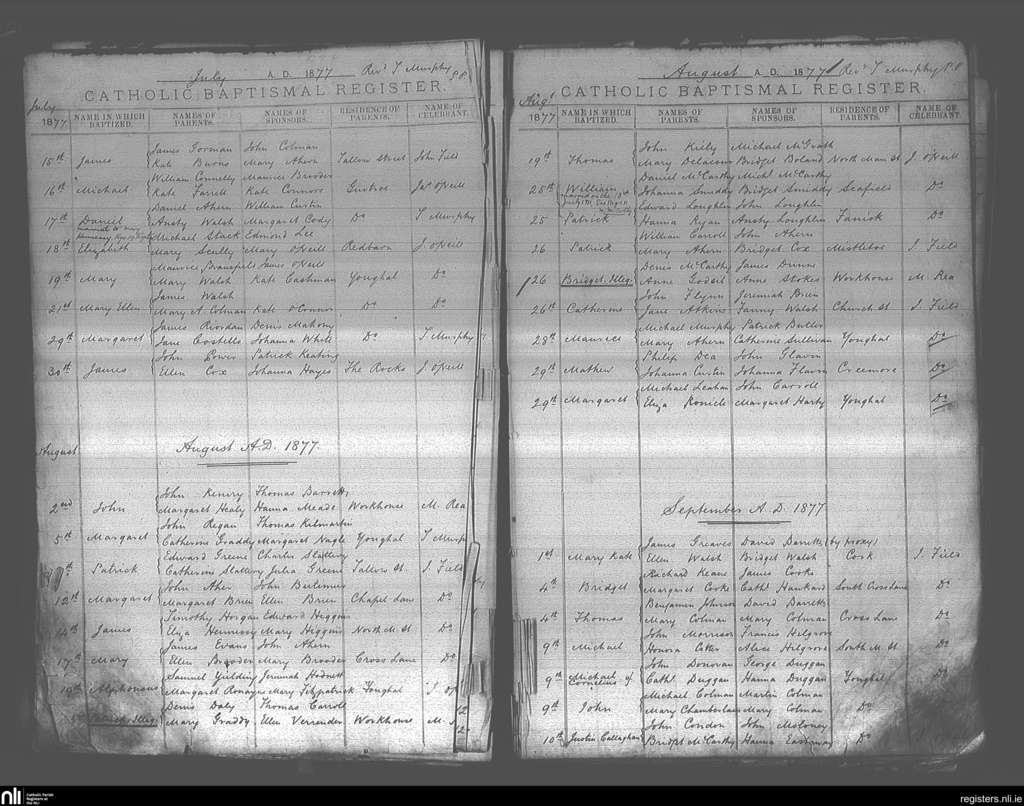 July A. D. 1877 Revd T Murphy P.P.
CATHOLIC BAPTISMAL REGISTER.
July
1877 NAME IN WHICH BAPTIZED. NAMES OF PARENTS. NAMES OF SPONSORS. RESIDENCE OF PARENTS. NAME OF CELEBRANT.
James Gorman John Colman
15th James Kate Burns Mary Ahern Tallow Street John Field
William Connelly Maurice Brooder
16th Michael Kate Farrell Kate Connors
Daniel Ahern William Curtin
17th Daniel Ansty Walsh Margaret Cody Do T Murphy
Michael Stack Edmond Lee
18th Elizabeth Mary Scully Mary O'Neill Redbarn J. O'Neill
Maurice James O'Neill
19th Mary Mary Walsh Kate Cashman Youghal Do
James Walsh
21st Mary Ellen Mary A. Colman Kate O'Connor Do Do
James Riordan Denis Mahony
29th Margaret Jane Costello Johanna White Do T Murphy
John Power Patrick Keating
30th James Ellen Cox Johanna Hayes The Rocks J. O'Neill
August August A.D. 1877.
John Keniry Thomas Barrett
2nd John Margaret Healy Hanna Meade Workhouse M. Rea
John Regan Thomas Kilmartin
5th Margaret Catherine Graddy Margaret Nagle Youghal T Murp
Edward Greene Charles Slattery
Patrick Catherine Slattery Julia Greene Tallow St. J. Field
John Aher John Bertemus
12th Margaret Margaret Brien Ellen Brien Chapel Lane Do
Timothy Horgan Edward Higgins
14th James Eliza Hennessy Mary Higgins North M. St Do
James Evans John Ahern
17th Mary Ellen Brooder Mary Brooder Cross Lane Do
Samuel Yielding Jeremiah Hodnett
19th Alphonsus Margaret Ronayne Mary Fitzpatrick Youghal
Denis Daly Thomas Carroll
Patrick. Illeg. Mary Graddy Ellen Verrender Workhouse
August A. D. 1877 Revd T Murphy P.P.
CATHOLIC BAPTISMAL REGISTER.
Augt
1877 NAME IN WHICH BAPTIZED. NAMES OF PARENTS. NAMES OF SPONSORS. RESIDENCE OF PARENTS. NAME OF CELEBRANT.
John Kiely Michael McGrath
19th Thomas Mary Delacour Bridget Boland North Main St J. O'Neill
Daniel McCarthy Michl McCarthy
25th William Johanna Smiddy Bridget Smiddy Seafield Do
Edward Loughlin John Loughlin
25 Patrick Hanna Ryan Ansty Loughlin Do
William Carroll John Ahern
26 Patrick Mary Ahern Bridget Cox Mistletoe J. Field
Denis McCarthy James Dunne
26 Bridget. Illeg. Anne Godsil Anne Stokes Workhouse M. Rea
John Flynn Jeremiah Brien
26th Catherine Jane Atkins Fanny Walsh Church St J. Field
Michael Murphy Patrick Butler
28th Maurice Mary Ahern Catherine Sullivan Youghal Do
Philip Dea John Glavin
29th Mathew Johanna Curtin Johanna Flavin Creemore Do
Michael Leahan John Carroll
29th Margaret Eliza Margaret Harty Youghal Do
September A. D. 1877
James Greaves David Barrett (by proxy)
1st Mary Kate Ellen Walsh Bridget Walsh Cork J. Field
Richard Keane James Cooke
4th Bridget Margaret Cooke Cathe Hankard South Crossdane Do
Benjamin Johnson David Barrett
4th Thomas Mary Colman Mary Colman Cross Lane Do
John Morrison Francis Hilgrove
9th Michael Honora Cotter Alice Hilgrove South M. St Do
John Donovan George Duggan
9th Michael Cornelius Cathe Duggan Hanna Duggan Youghal Do
Michael Colman Martin Colman
9th John Mary Chamberlain Mary Colman Do
John Condon John Moloney
10th Justin Callaghan Bridget McCarthy Hanna Do
nli Catholic Parish Registers at the NLI
registers.nli.ie